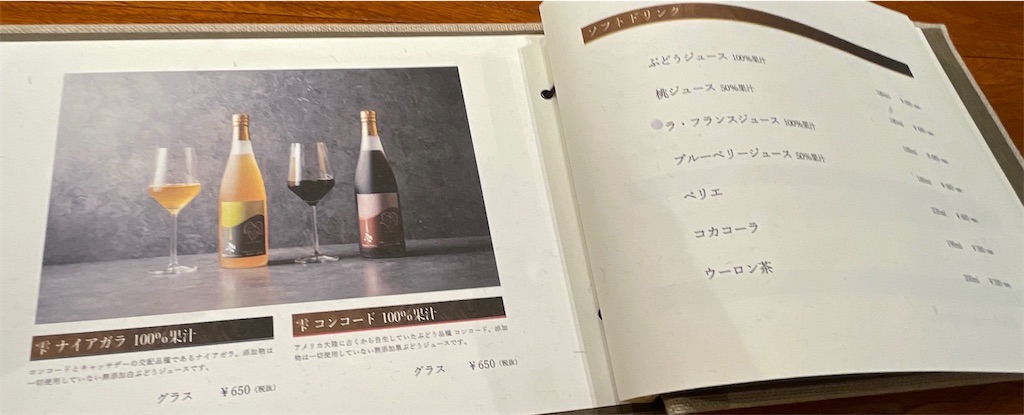 雫 ナイアガラ 100%果汁
コンコードとキャッサザーの交配品種であるナイアガラ。添加物は
一切使用していない無添加白ぶどうジュースです。
グラス ¥650(税抜)
雫 コンコード 100%果汁
アメリカ大陸に古くから自生していたぶどう品種 コンコード。添加
物は一切使用していない無添加黒ぶどうジュースです。
グラス ¥650(税抜)
ソフトドリンク
ぶどうジュース 100%果汁
桃ジュース 50%果汁
ラ・フランスジュース 100%果汁
ブルーベリージュース 50%果汁
ペリエ
コカコーラ
ウーロン茶